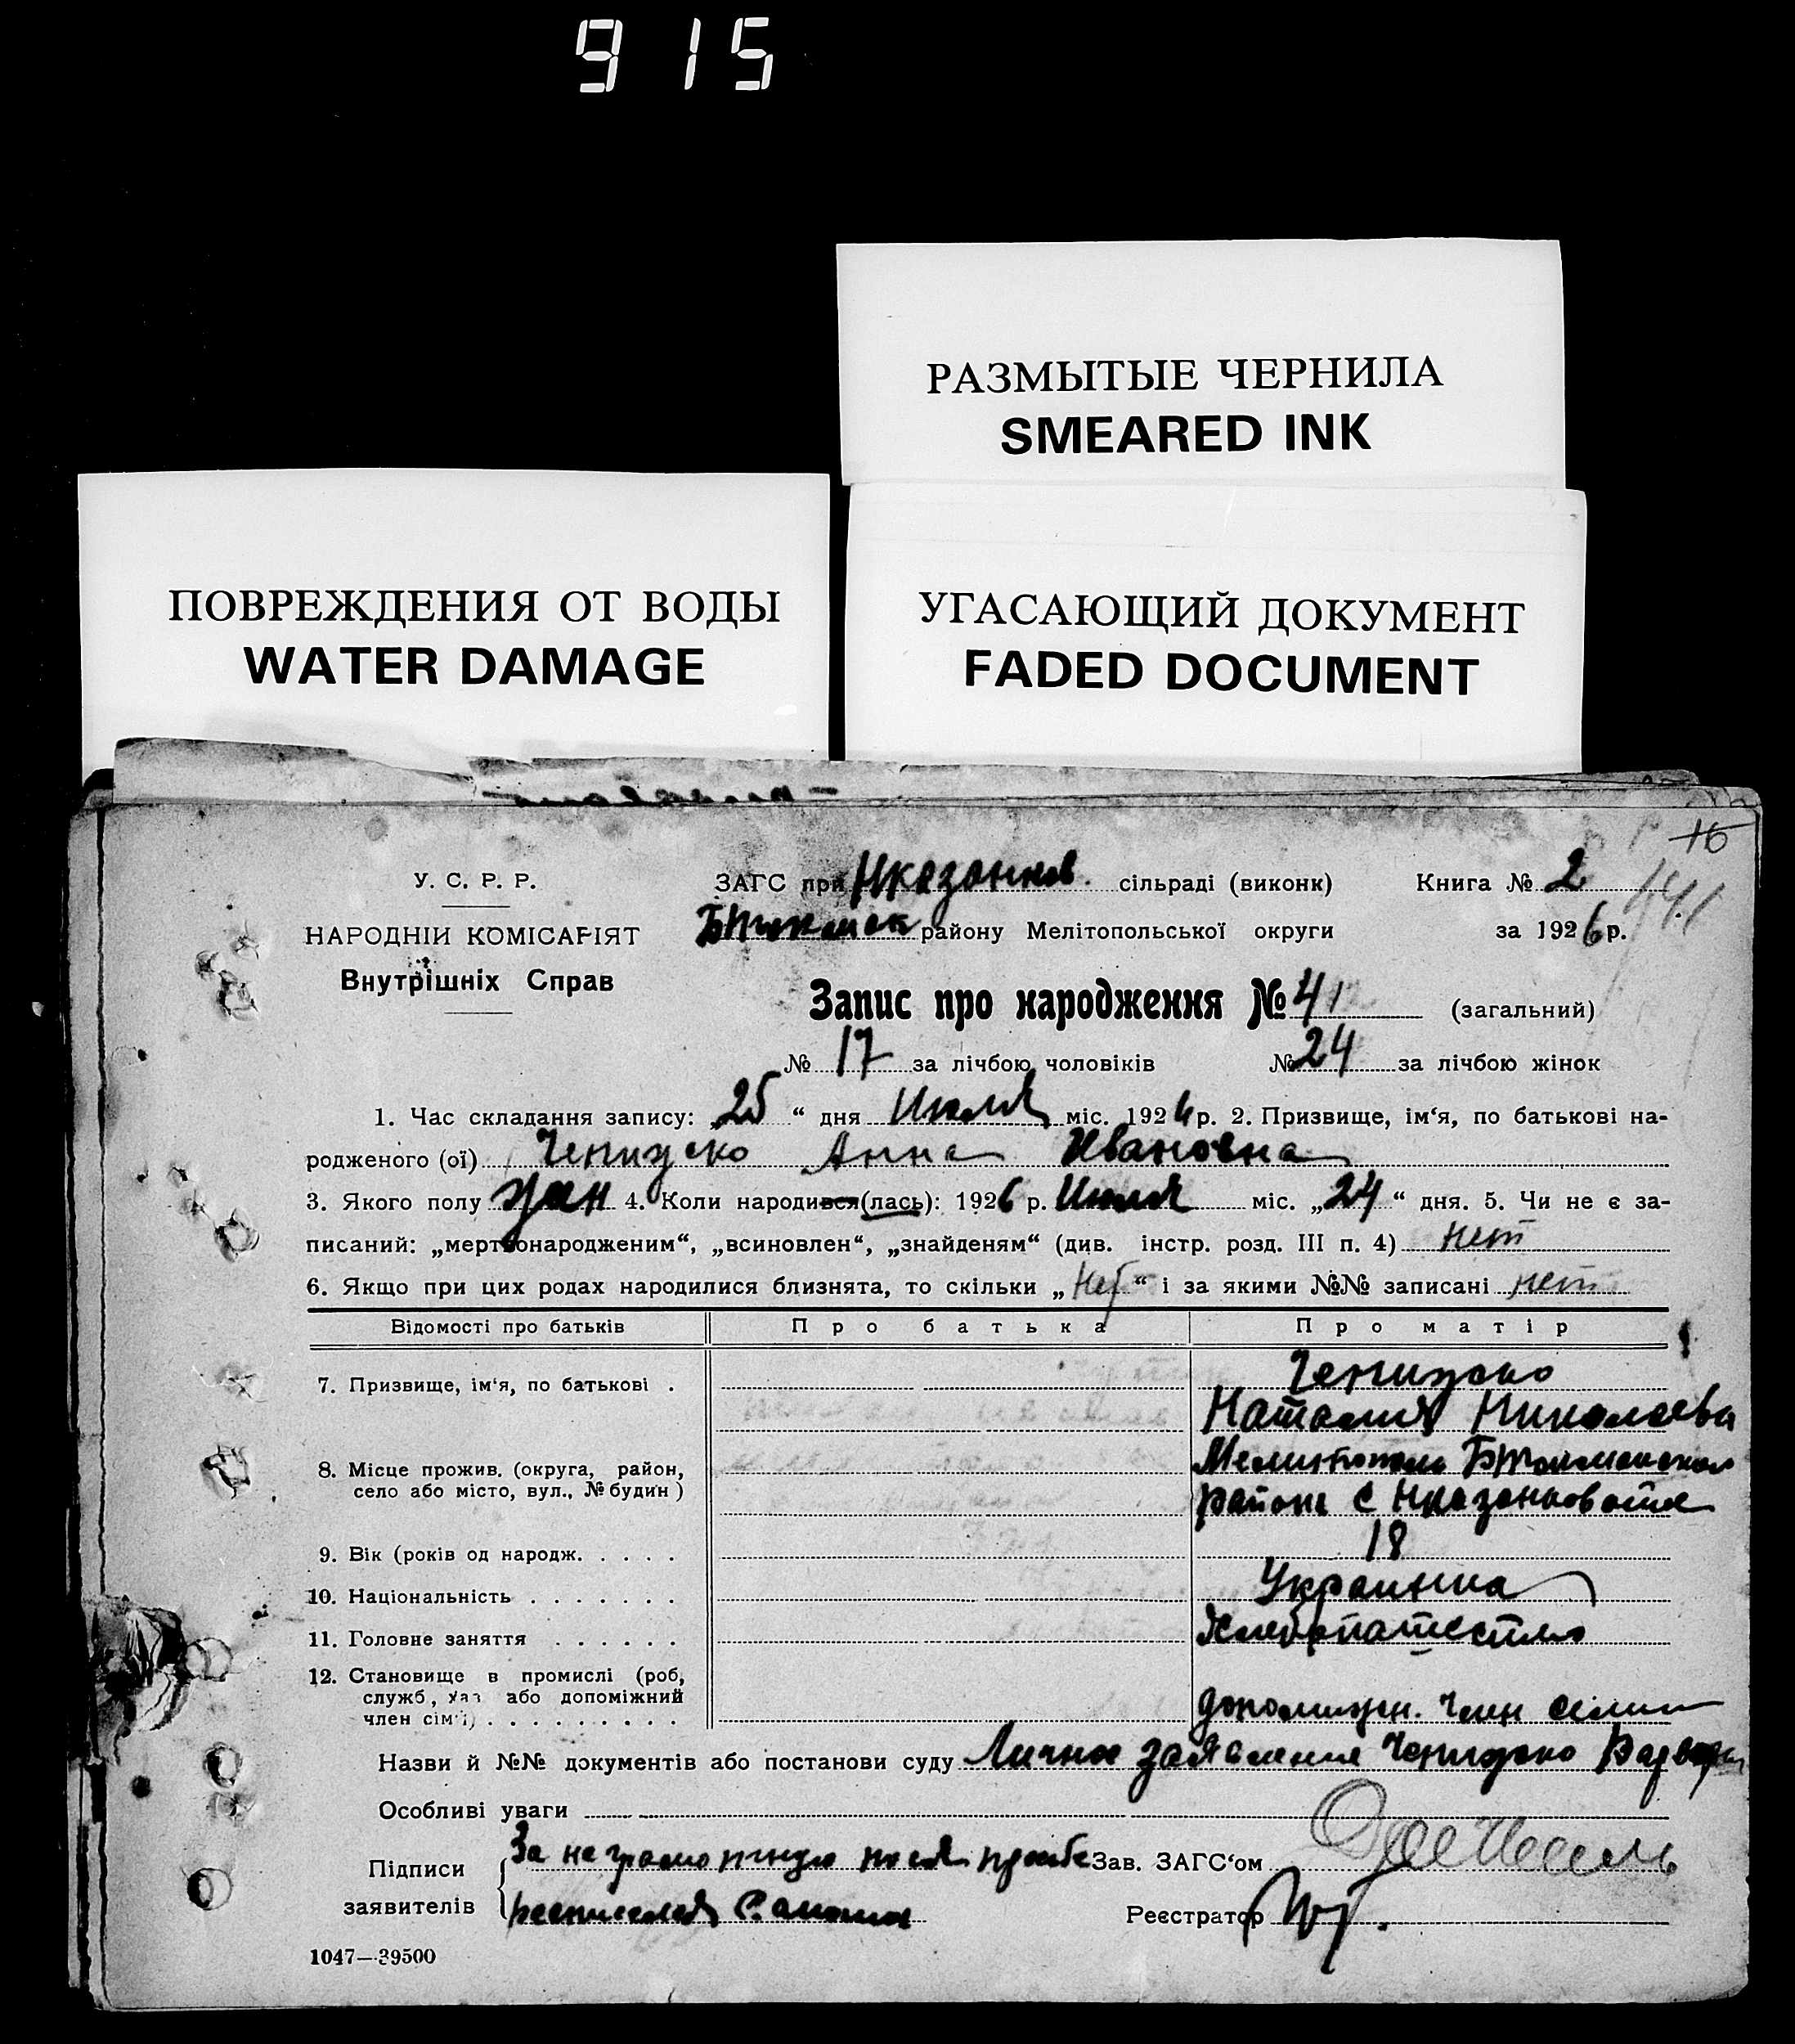 915
РАЗМЫТЫЕ ЧЕРНИЛА
SMEARED INK
ПОВРЕЖДЕНИЯ ОТ ВОДЫ
WATER DAMAGE
УГАСАЮЩИЙ ДОКУМЕНТ
FADED DOCUMENT
16
У. С. Р. Р.
ЗАГС при сільраді (виконк) Книга № 2
НАРОДНІЙ КОМІСАРІЯТ
району Мелітопольської округи за 1926 р.
Внутрішніх Справ
Запис про народження № 41 (загальний)
№ 17 за лічбою чоловіків № 24 за лічбою жінок
1. Час складання запису: „25“ дня Июля міс. 1926 р. 2. Призвище, ім‘я, по батькові на-
родженого (ої) Анна Ивановна
3. Якого полу жен 4. Коли народився(лась): 1926 р. Июля міс. „24“ дня. 5. Чи не є за-
писаний: „мертвонародженим“, „всиновлен“, „знайденям“ (див. інстр. розд. III п. 4) нет
6. Якщо при цих родах народилися близнята, то скільки „Нет“ і за якими №№ записані нет
Відомості про батьків Про батька Про матір
7. Призвище, ім‘я, по батькові .
Наталия Николаевна
8. Місце прожив. (округа, район,
село або місто, вул., № будин)
района с
9. Вік (років од народж. . . . . 18
10. Національність . . . . . . . Украинка
11. Головне заняття . . . . . .
12. Становище в промислі (роб,
служб, хаз або допоміжний
член сім‘ї) . . . . . . . . .
допомижн. член семии
Назви й №№ документів або постанови суду Личное заявление
Особливі уваги
Підписи За неграмотную по ея прозбе Зав. ЗАГС‘ом
заявителів Реєстратор
1047—39500